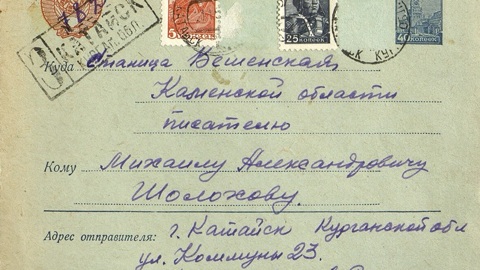 КАТАЙСК
КУРГ. ОБЛ.
5
КОПЕЕК
25
КОПЕЕК
40
КОПЕЕК
Куда Станица Вешенская,
Каменской области
писателю
Кому Михаилу Александровичу
Шолохову.
Адрес отправителя: г. Катайск Курганской обл
ул. Коммуны 23.